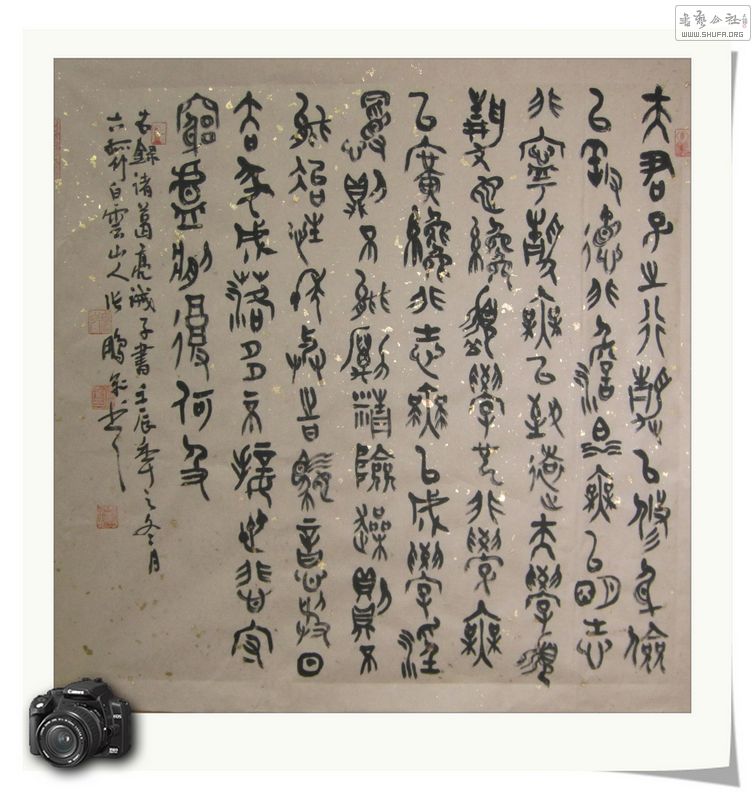 夫君子之行靜以修身儉
以養德非澹泊無以明志
非寧靜無以致遠夫學須
靜也纔須學也非學無
以廣纔非志無以成學淫
慢則不能勵精險躁則不
能治性年與時馳意與日
去遂成落多不接世悲守
窮廬將復何及
錄諸葛亮誡子書壬辰年之冬月
白雲山人張鵬
書藝公社
WWW.SHUFA.ORG
Canon
EOS